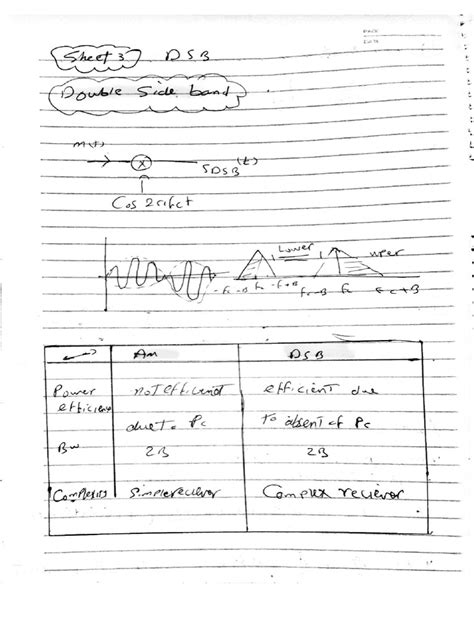 Sheet 3 DSB
Double Side band
m(t)
X
SDSB(t)
Cos 2πfct
Lower
upper
-fc-B fc -fc+B fc-B fc fc+B
Am DSB
Power not efficient efficient due
efficience due to Pc to absent of Pc
Bw 2B 2B
Complexity Simple reciever Complex reciever